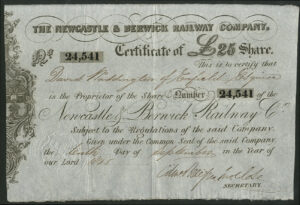 THE NEWCASTLE & BERWICK RAILWAY COMPANY.
No. 24,541 Certificate of £25 Share.
This is to certify that
David Waddington of Enfield,
is the Proprietor of the Share Number 24,541 of the
Newcastle & Berwick Railway Co.
Subject to the Regulations of the said Company.
Given under the Common Seal of the said Company
the Day of September in the Year of
our Lord
SECRETARY.